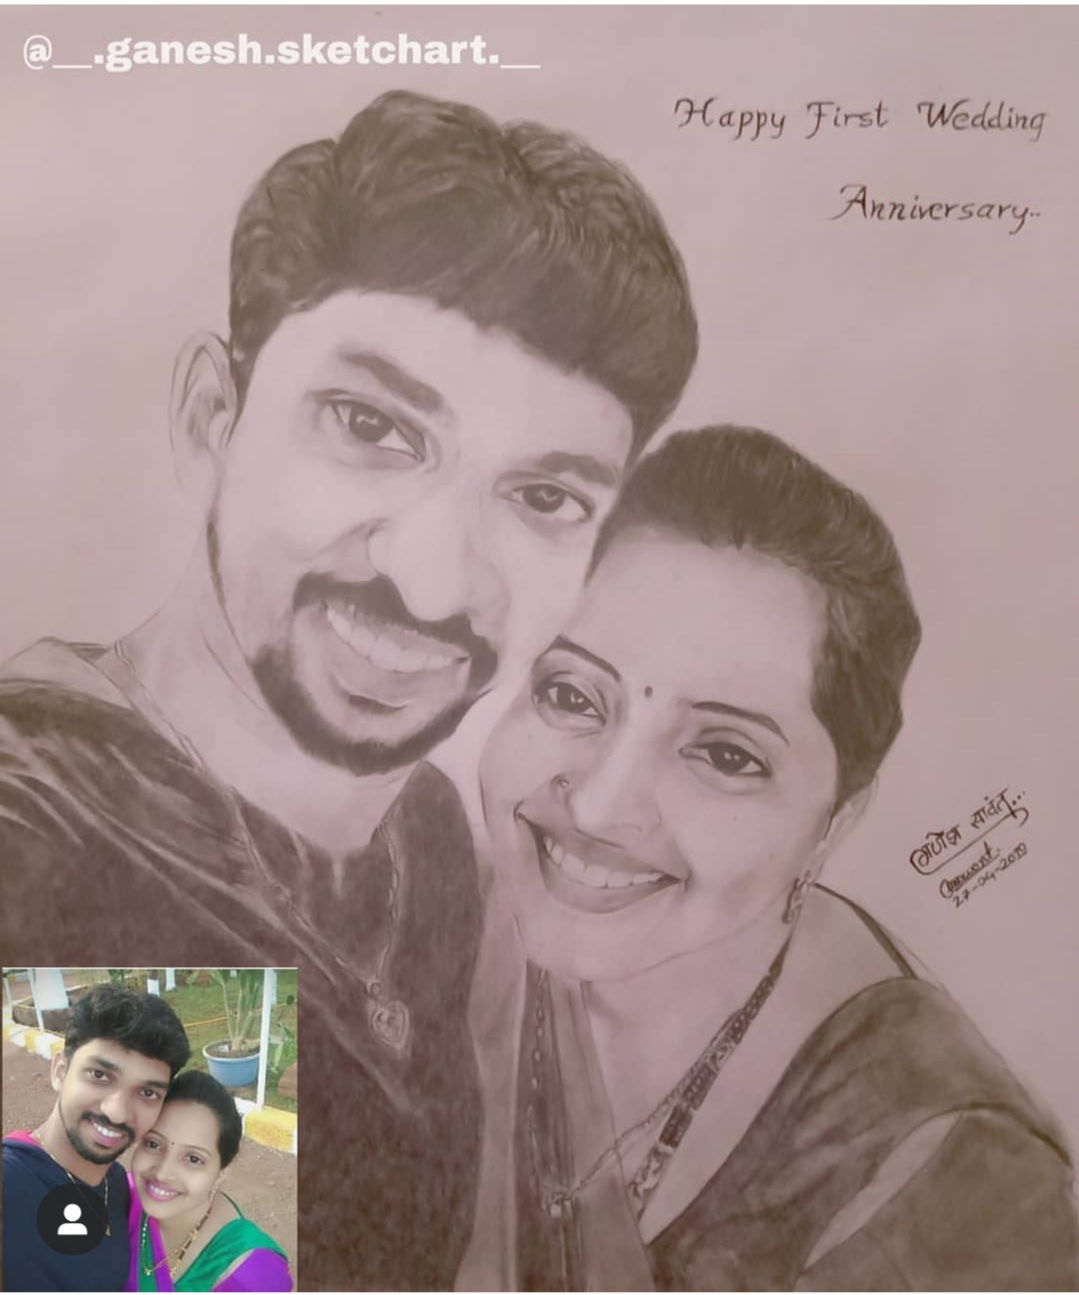 @__.ganesh.sketchart.__
Happy First Wedding
Anniversary..
गणेश सावंत...
27-04-2019